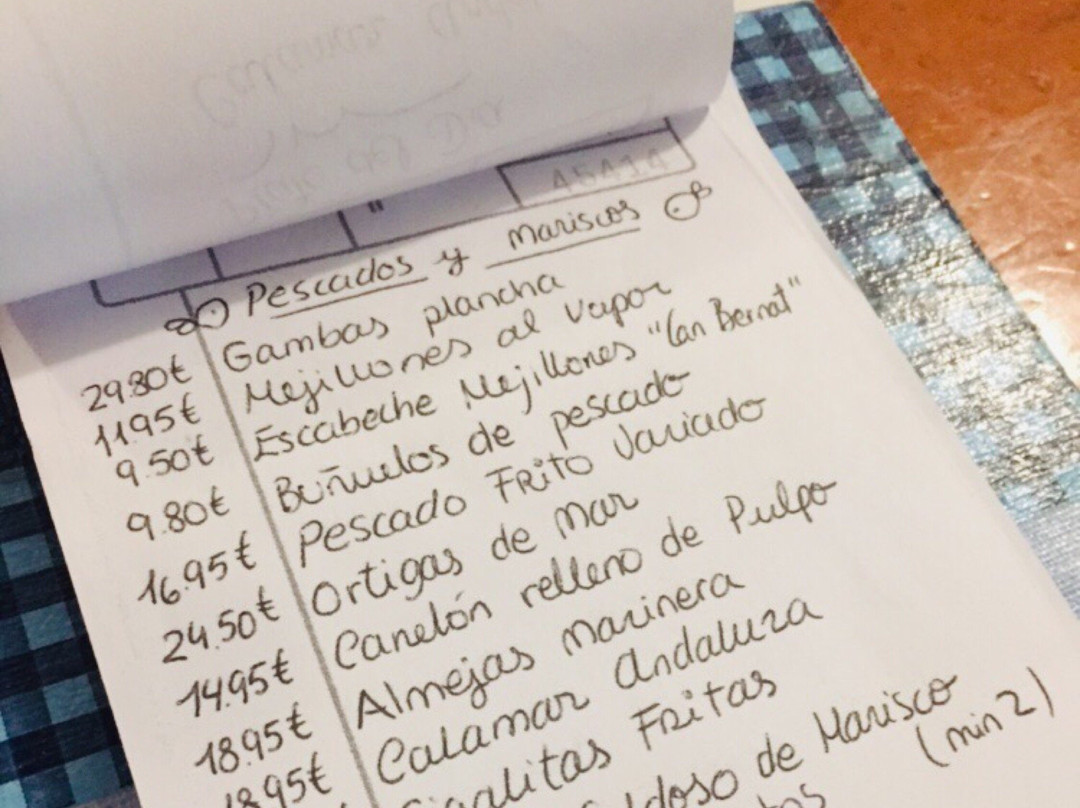 Pescados y Mariscos
29.80€ Gambas plancha
11.95€ Mejillones al vapor
9.50€ Escabeche Mejillones "Can Bernat"
9.80€ Buñuelos de pescado
16.95€ Pescado Frito Variado
24.50€ Ortigas de mar
14.95€ Canelón relleno de Pulpo
18.95€ Almejas marinera
18.95€ Calamar andaluza
Fritas
de Marisco
(min 2)